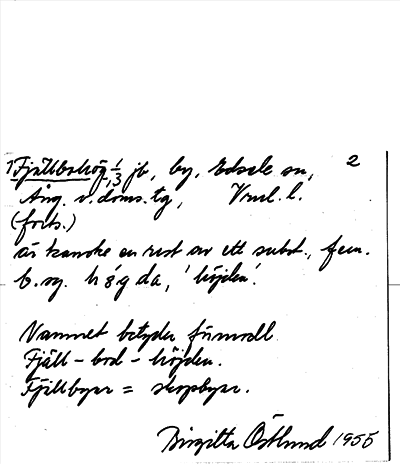 1) Fjällbohög 1/1,3 jb, by, Edsele sn, 2
Ång. v. doms. tg, Vrml. l.
(forts.)
är kanske en rest av ett subst., fem.
b. sg. högda, 'höjden'.
Namnet betyder förmodl.
Fjäll - bod - höjden.
Fjällbyar = skogsbyar.
Birgitta Östlund 1955